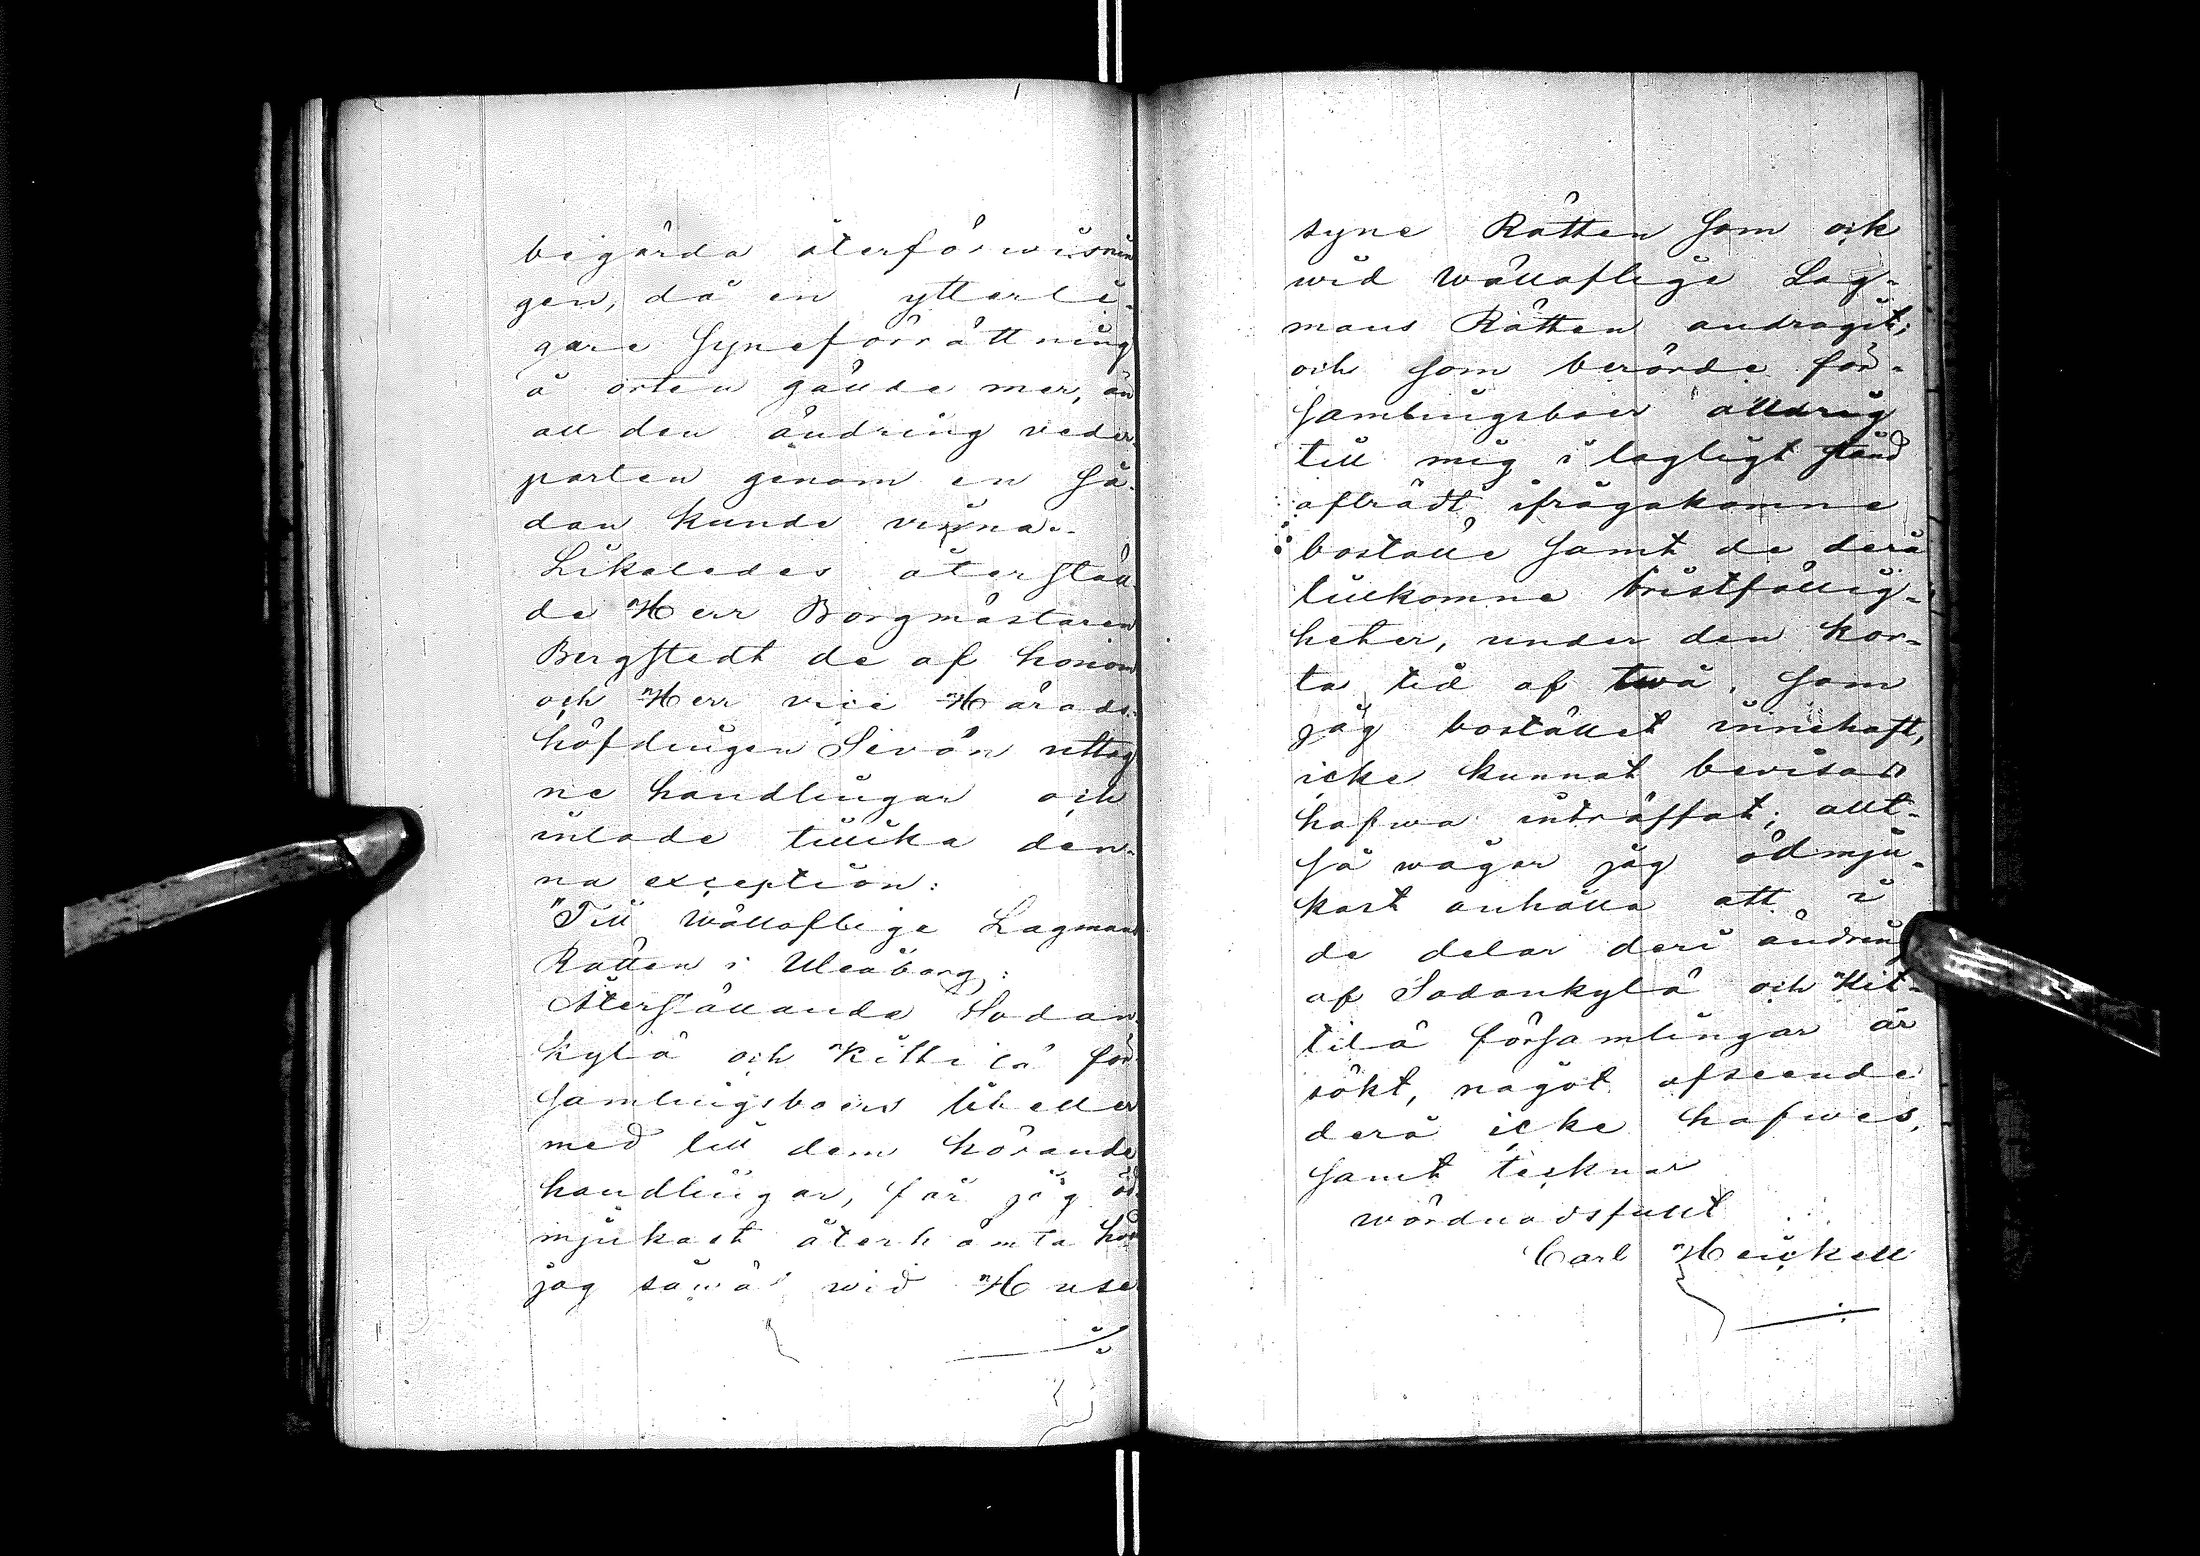 begärda återförwisnin
gen, då en ytterli-
gare Syneförrättning
å orten gällde mer, än
all den ändring veder-
parten genom en Så-
dan kunde vinna.
Likaledes återställ-
de Herr Borgmästaren
Bergstedt de af honom
och Herr vice Härads-
höfdingen Sivén uttag
ne handlingar och
inlade tillika den-
na exception:
"Till Wälloflige Lagmans
Rätten i Uleåborg;
Återställande Sodan-
kylä och Kittilä för-
samlingsboers libeller
med till dem hörande
handlingar, får jag öd-
mjukast återhämta hur
jag såwäl wid Huse
syne Rätten Som ock
wid Wälloflige Lag-
mans Rätten andragit;
och Som berörde för-
samlingsboer alldrig
till mig i lagligt stånd
afträdt ifrågakomne
boställe Samt de derå
tillkomne bristfällig-
heter, under den kor-
ta tid af twå, Som
jag bostället innehaft,
icke kunnat bevisas
hafwa inträffat; allt-
så wågar jag ödmju-
kast anhålla att i
de delar deri ändring
af Sodankylä och Kit-
tilä församlingar är
sökt, något afseende
derå icke hafwes,
Samt tecknar
wördnadsfullt
Carl Heickell